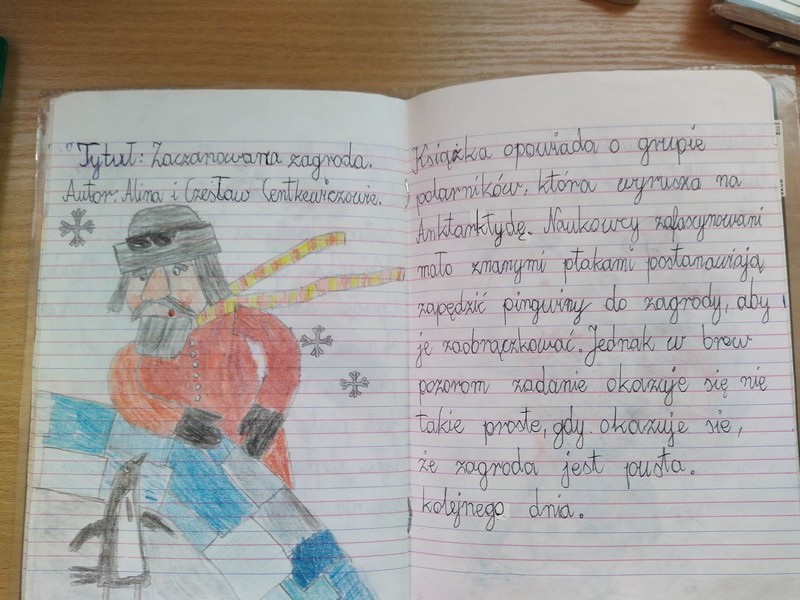 Tytuł: Zaczarowana zagroda.
Autor: Alina i Czesław Centkiewiczowie.
Książka opowiada o grupie
polarników, która wyrusza na
Anktarktydę. Naukowcy zafascynowani
mało znanymi ptakami postanawiają
zapędzić pingwiny do zagrody, aby
je zaobrączkować. Jednak w brew
pozorom zadanie okazuje się nie
takie proste, gdy okazuje sie,
że zagroda jest pusta.
kolejnego dnia.